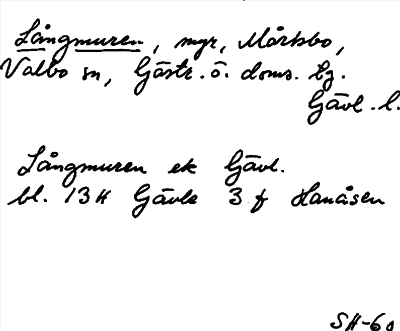 Långmuren, myr, Mårtsbo,
Valbo sn, Gästr. ö. doms. tg.
Gävl. l.
Långmuren ek Gävl.
bl. 13 H Gävle 3 f Hanåsen
SH-60